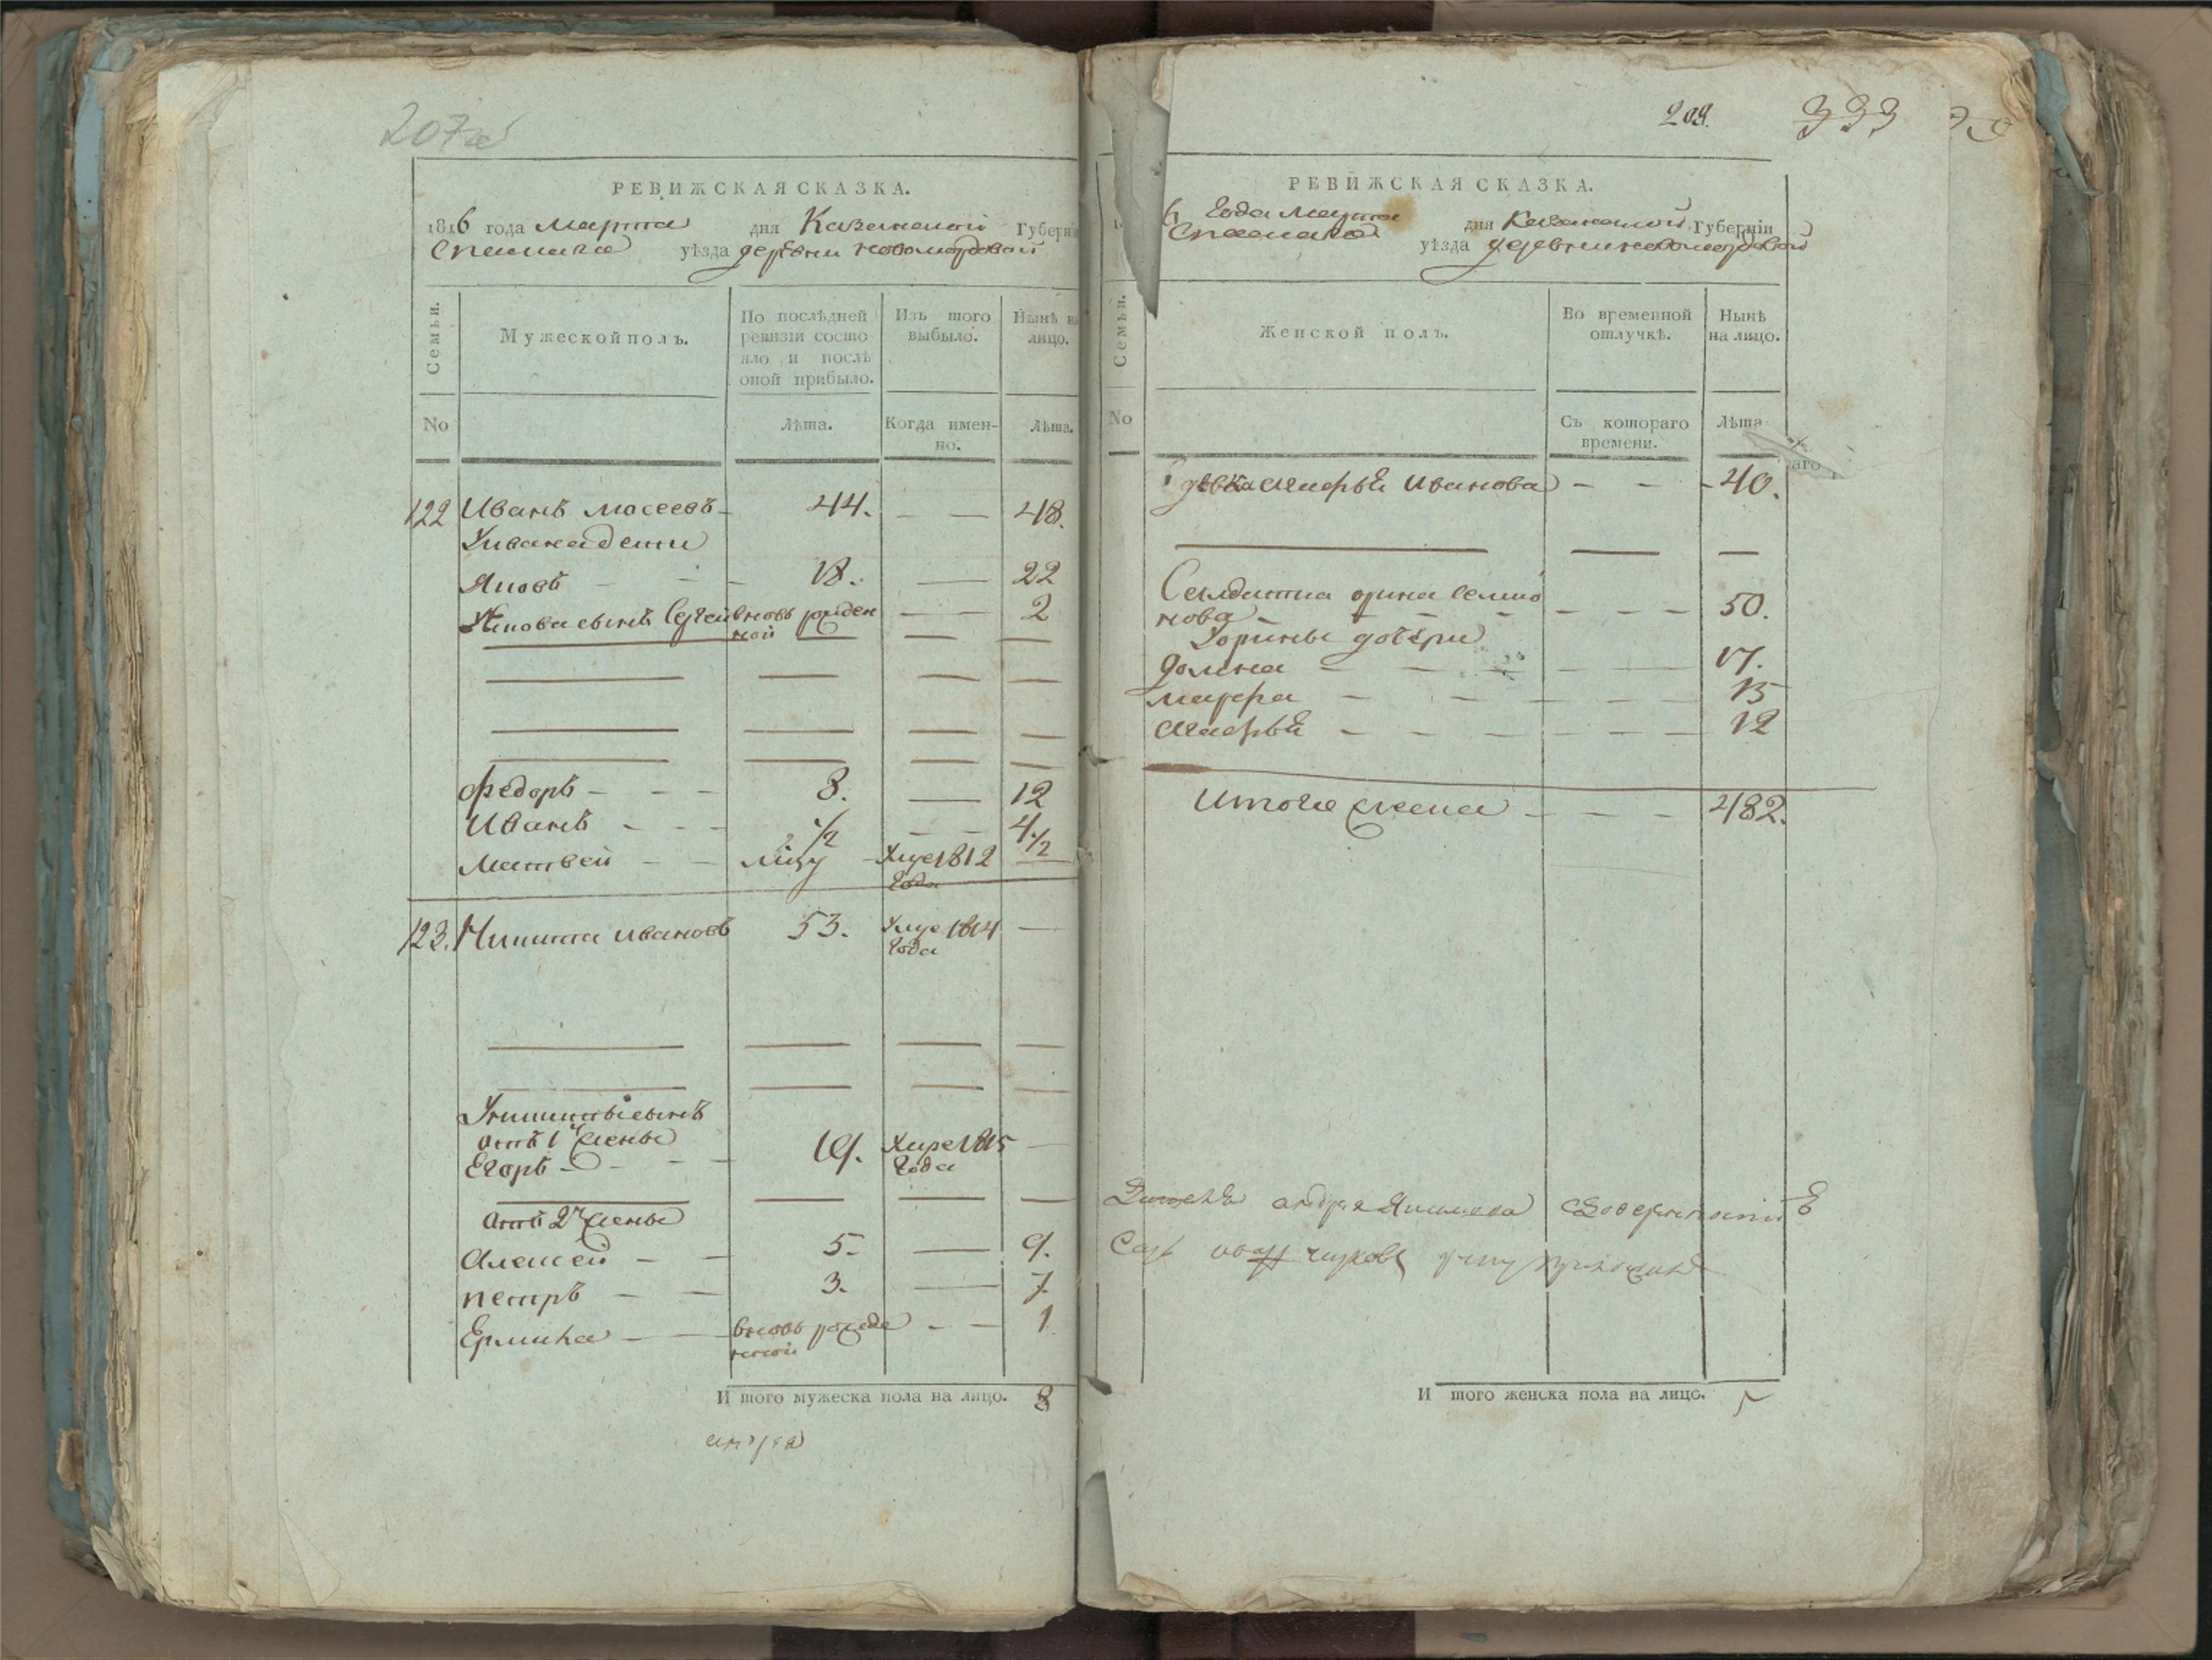 207об
РЕВИЖСКАЯ СКАЗКА.
1816 года Марта дня Казанской Губерніи
Спасскаго уѣзда деревни новомордовой
Семьи.
Мужеской полъ.
По послѣдней ревизіи состояло и послѣ оной прибыло.
Изъ того выбыло.
Нынѣ на лицо.
No
Лѣта.
Когда именно.
Лѣта.
122 Иванъ мосеевъ 44. 48.
Уивана дети
Яковъ 18. 22
Уякова сынъ Сергей вновь рожденной 2
федоръ 8. 12
Иванъ 1/2 4 1/2
Матвей Умре 1812 года
123. Никита ивановъ 53. Умре 1814 года
Уникиты сынъ
отъ 1й жены
Егоръ 19. Умре 1815 года
отъ 2й жены
Алексей 5. 9.
петръ 3. 7
Ермила вновь рожденной 1
И того мужеска пола на лицо. 8
209. 333
РЕВИЖСКАЯ СКАЗКА.
6 Года Марта дня Казанской Губерніи
Спасскаго уѣзда деревни новомордовой
Семьи.
Женской полъ.
Во временной отлучкѣ.
Нынѣ на лицо.
No
Съ котораго времени.
Лѣта
аго
девка Марья Иванова 40.
Салдатка орина семионова 50.
Уорины дочери
Домна 17.
марфа 15
Марья 12
Итого женска 482.
И того женска пола на лицо. 5